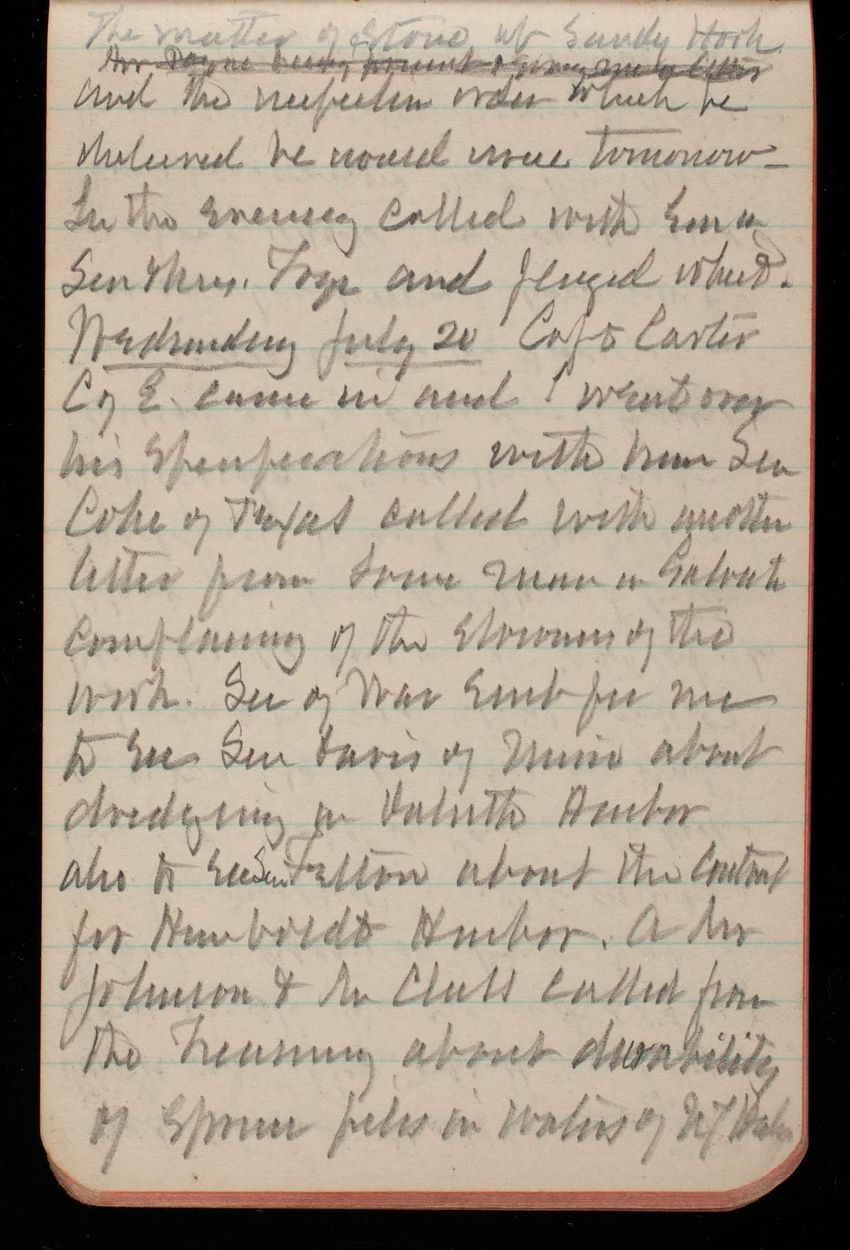 The matter of Stone at Sandy Hook
Mr Payne being present & giving me a letter
and the inspection order which he
believed he would issue tomorrow –
In the evening called with Em on
Sen & Mrs. Frye and played whist.
Wednesday July 20 Capt Carter
C of E. came in and I went over
his specifications with him Sen
Coke of Texas called with another
letter from some man in Galvesto
complaining of the slowness of the
work. Sec of War sent for me
to see Sen Davis of Minn about
dredging in Duluth Harbor
also to see Sen Felton about the contract
for Humboldt Harbor. A Mr
Johnson & Mr Clark called from
the Treasury about durability
of spruce piles in waters of NY Harbor